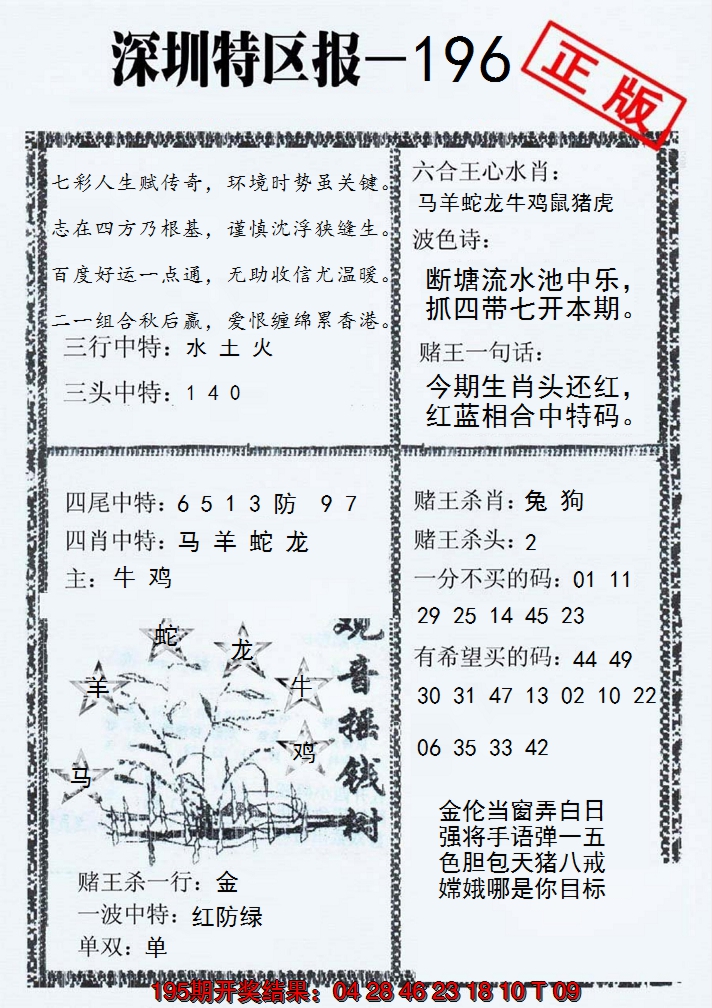 深圳特区报—196
正版
七彩人生赋传奇，环境时势虽关键。
志在四方乃根基，谨慎沈浮狭缝生。
百度好运一点通，无助收信尤温暖。
二一组合秋后赢，爱恨缠绵累香港。
三行中特：水 土 火
三头中特：1 4 0
六合王心水肖：
马羊蛇龙牛鸡鼠猪虎
波色诗：
断塘流水池中乐，
抓四带七开本期。
赌王一句话：
今期生肖头还红，
红蓝相合中特码。
四尾中特：6 5 1 3 防 9 7
四肖中特：马 羊 蛇 龙
主：牛 鸡
蛇
龙
羊
牛
鸡
马
观音摇钱树
赌王杀一行：金
一波中特：红防绿
单双：单
赌王杀肖：兔 狗
赌王杀头：2
一分不买的码：01 11
29 25 14 45 23
有希望买的码：44 49
30 31 47 13 02 10 22
06 35 33 42
金伦当窗弄白日
强将手语弹一五
色胆包天猪八戒
嫦娥哪是你目标
195期开奖结果：04 28 46 23 18 10 T 09